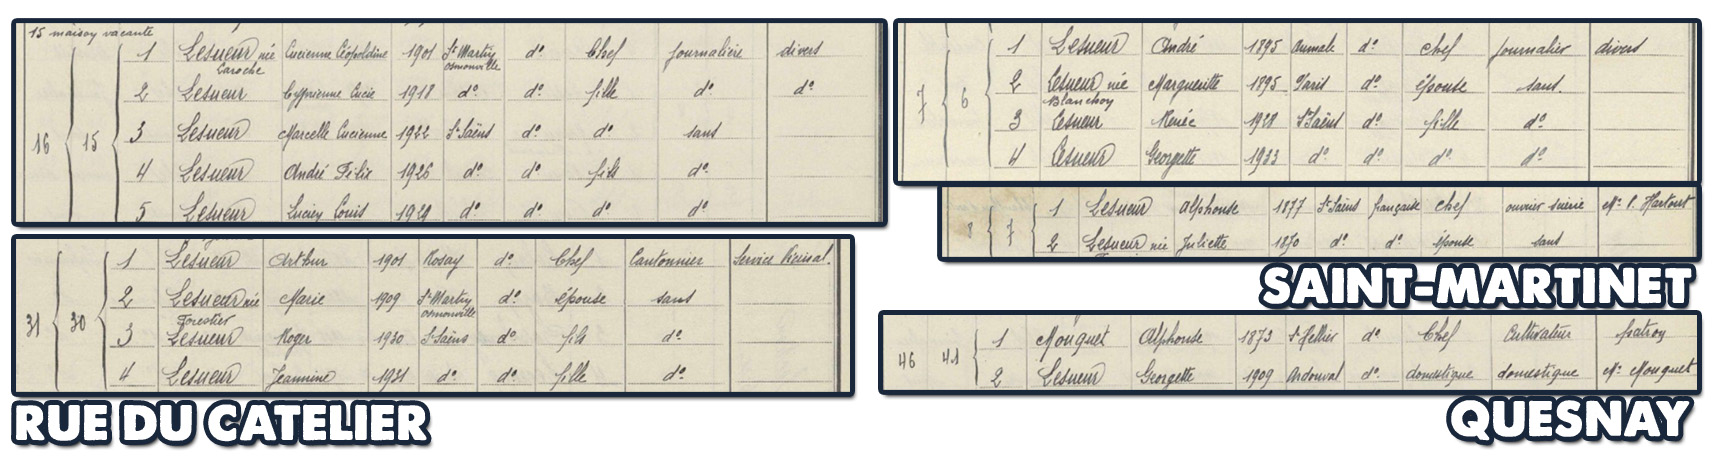 15 maison vacante
16 15 1 Lesueur née Lucienne Léopoldine 1901 St Martin d° Chef journalière divers
Laroche osmonville
2 Lesueur Cyprienne Lucie 1918 d° d° fille d° d°
3 Lesueur Marcelle Lucienne 1922 St Saëns d° d° sans
4 Lesueur André Félix 1926 d° d° fils d°
5 Lesueur Lucien Louis 1929 d° d° d° d°
31 30 1 Lesueur Arthur 1901 Rosay d° Chef Cantonnier Service Vicinal.
2 Lesueur née Marie 1909 St Martin d° épouse sans
Forestier osmonville
3 Lesueur Roger 1930 St Saëns d° fils d°
4 Lesueur Jeannine 1931 d° d° fille d°
RUE DU CATELIER
7 6 1 Lesueur André 1895 Aumale d° chef journalier divers
2 Lesueur née Marguerite 1895 Paris d° épouse sans.
Blanchoy
3 Lesueur Renée 1928 St Saëns d° fille d°
4 Lesueur Georgette 1933 d° d° d° d°
8 7 1 Lesueur Alphonse 1877 St Saëns française Chef ouvrier
2 Lesueur née Juliette 1870 d° d° épouse sans
SAINT-MARTINET
46 41 1 Mouquet Alphonse 1873 St Hellier d° Chef Cultivateur patron
2 Lesueur Georgette 1909 Ardouval d° domestique domestique Mr Mouquet
QUESNAY